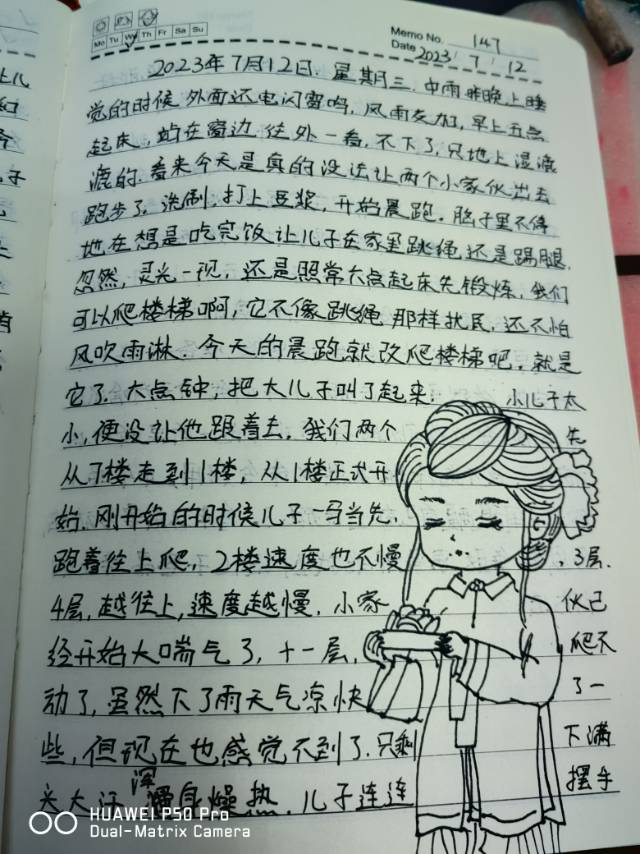 Mo Tu We Th Fr Sa Su
Memo No. 147
Date 2023 / 7 / 12
2023年7月12日 星期三 中雨 昨晚上睡
觉的时候外面还电闪雷鸣,风雨交加,早上五点
起床,站在窗边往外一看,不下了,只地上湿漉
漉的.看来今天是真的没法让两个小家伙出去
跑步了.洗刷,打上豆浆,开始晨跑.脑子里不停
地在想是吃完饭让儿子在家里跳绳还是踢腿.
忽然,灵光一现,还是照常六点起床先锻炼,我们
可以爬楼梯啊,它不像跳绳那样扰民,还不怕
风吹雨淋.今天的晨跑就改爬楼梯吧.就是
它了.六点钟,把大儿子叫了起来.小儿子太
小,便没让他跟着去.我们两个先
从7楼走到1楼,从1楼正式开
始.刚开始的时候儿子一马当先,
跑着往上爬,2楼速度也不慢,3层.
4层,越往上,速度越慢.小家伙已
经开始大喘气了,十一层,爬不
动了,虽然下了雨天气凉快了一
些,但现在也感觉不到了.只剩下满
头大汗 浑身燥热.儿子连连摆手
HUAWEI P50 Pro
Dual-Matrix Camera